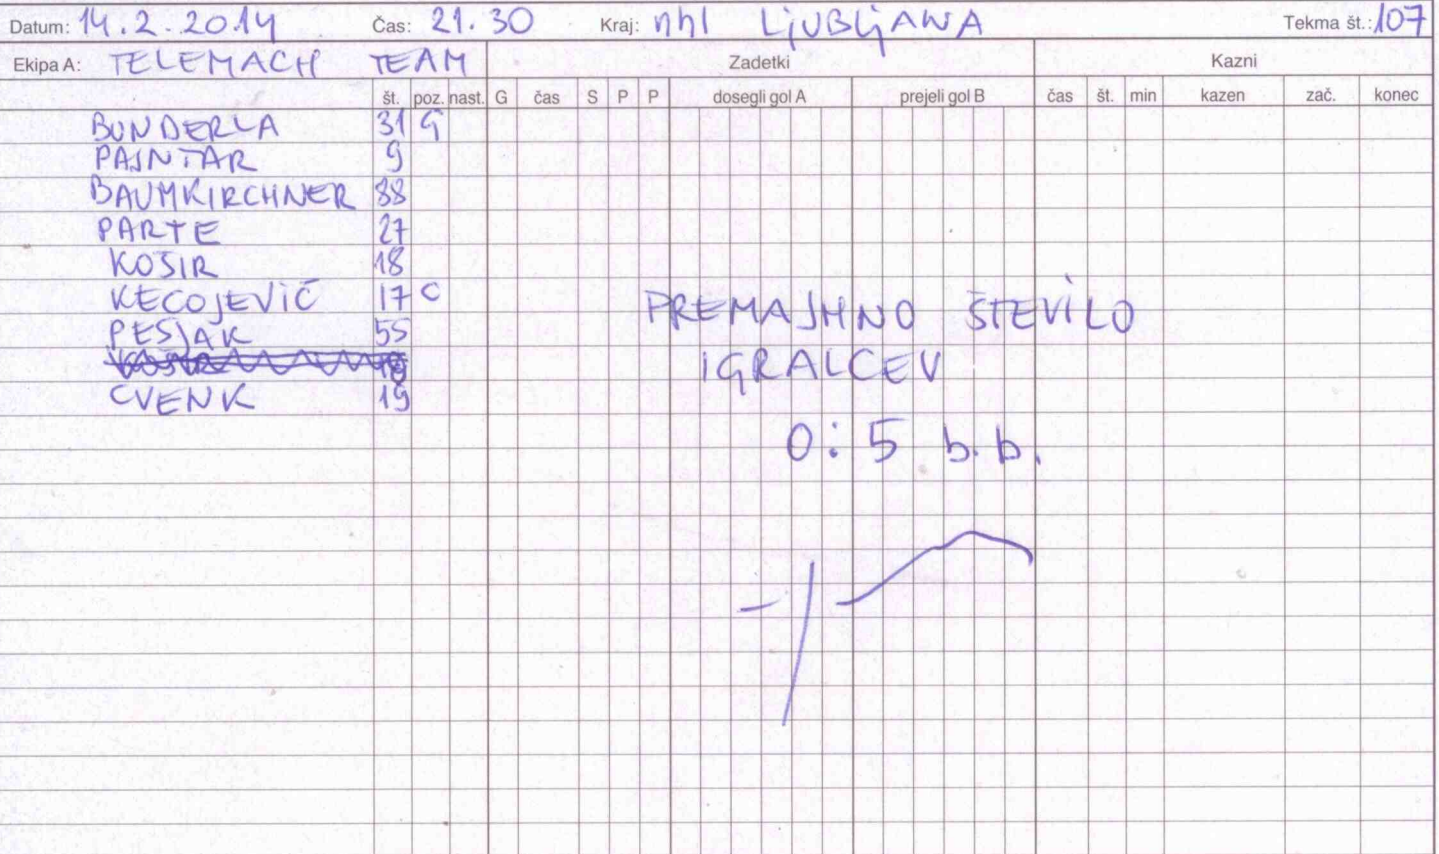 Datum: 14.2.2014 Čas: 21.30 Kraj: nhl LJUBLJANA Tekma št.: 107
Ekipa A: TELEMACH TEAM Zadetki Kazni
št. poz. nast. G čas S P P dosegli gol A prejeli gol B čas št. min kazen zač. konec
BUNDERLA 31 G
PAJNTAR 9
BAUMKIRCHNER 88
PARTE 27
KOŠIR 18
KECOJEVIČ 17 C
PESJAK 55
CVENK 19
PREMAJHNO ŠTEVILO
IGRALCEV
0:5 b.b.